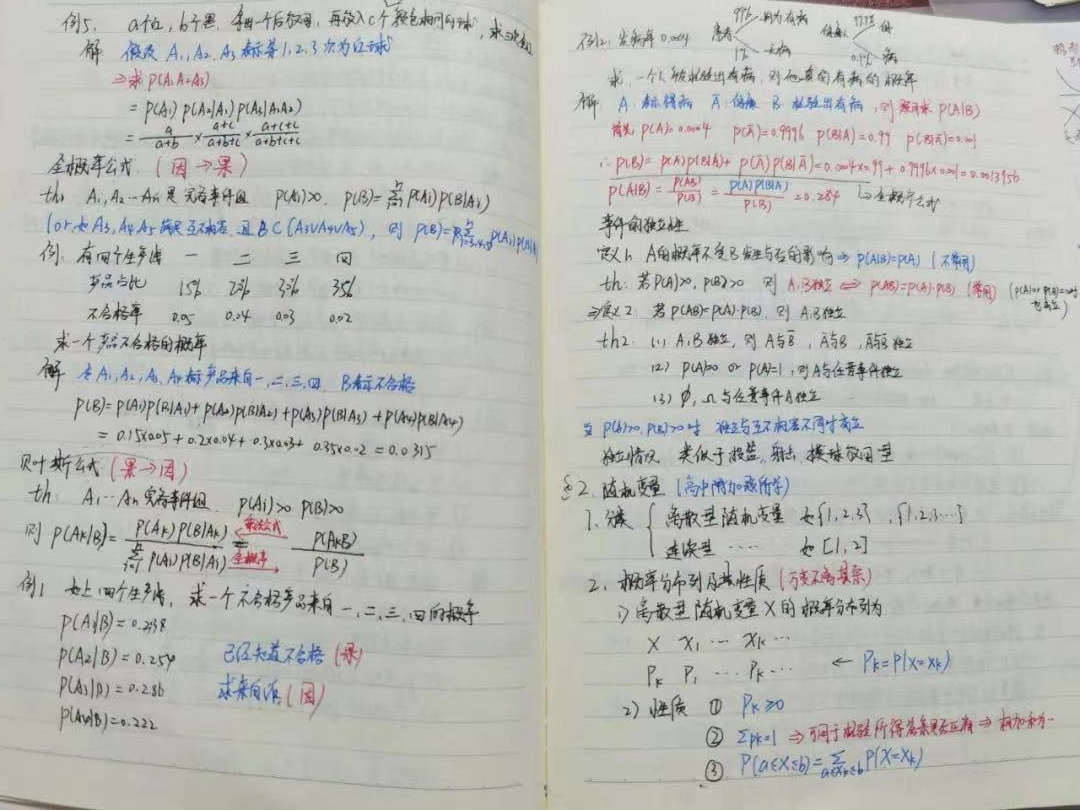 例5. a个红, b个黑, 拿出一个后放回, 再放入c个颜色相同的球, 求三次红
解 假设 A₁, A₂, A₃ 表示第1, 2, 3次为红球
⇒求 P(A₁A₂A₃)
= P(A₁) P(A₂|A₁) P(A₃|A₁A₂)
= a/(a+b) × (a+c)/(a+b+c) × (a+c+c)/(a+b+c+c)
全概率公式. (因→果)
th: A₁, A₂ … An 是完备事件组 P(Ai)>0, P(B)=Σ P(Ai)P(B|Ai)
(or 如 A₃, A₄, A₅ 满足互不相容, 且 B⊂(A₃∪A₄∪A₅), 则 P(B)=Σ i=3,4,5 P(Ai)P(B|Ai)
例: 有四个生产线 一 二 三 四
产品占比 15% 20% 30% 35%
不合格率 0.05 0.04 0.03 0.02
求一个产品不合格的概率
解 令 A₁, A₂, A₃, A₄ 表示产品来自一, 二, 三, 四, B表示不合格
P(B)=P(A₁)P(B|A₁)+P(A₂)P(B|A₂)+P(A₃)P(B|A₃)+P(A₄)P(B|A₄)
= 0.15×0.05+0.2×0.04+0.3×0.03+0.35×0.02=0.0315
贝叶斯公式 (果→因)
th: A₁ … An 完备事件组. P(Ai)>0 P(B)>0
则 P(Ak|B)= P(Ak)P(B|Ak) / Σ i=1 n P(Ai)P(B|Ai) 乘法公式 全概率 = P(AkB)/P(B)
例1 如上四个生产线, 求一个不合格产品来自一、二、三、四的概率
P(A₁|B)=0.238
P(A₂|B)=0.254 已经知道不合格 (果)
P(A₃|B)=0.286 求来自谁 (因)
P(A₄|B)=0.222
例2. 发病率 0.0004 患者 99% 有病 1% 无病 健康 99.9% 0.1% 病
求. 一个人被检验出有病, 则他真的有病的概率
解 A: 表示得病 Ā: 健康 B: 检验出有病, 则 求 P(A|B)
首先 P(A)=0.0004 P(Ā)=0.9996 P(B|A)=0.99 P(B|Ā)=0.001
∴P(B)=P(A)P(B|A)+P(Ā)P(B|Ā)=0.0004×0.99+0.9996×0.001=0.0013956
P(A|B)=P(AB)/P(B)=P(A)P(B|A)/P(B)=0.284 ↳全概率公式
事件的独立性
定义1. A的概率不受B发生与否的影响⇒P(A|B)=P(A) (不常用)
th: 若P(A)>0, P(B)>0 则 A.B独立 ⇔ P(AB)=P(A)·P(B) (常用) (P(A)=0 or P(B)=0时也成立)
⇒定义2 若P(AB)=P(A)·P(B), 则 A.B独立
th2. (1) A,B独立, 则 A与B̄, Ā与B, Ā与B̄独立
(2) P(A)=0 or P(A)=1, 则A与任意事件独立
(3) ∅, Ω与任意事件A独立
当 P(A)>0, P(B)>0时 独立与互不相容不同时成立
独立情况 类似于投篮, 射击, 摸球放回型
§2. 随机变量 (高中附加题所学)
1. 分类 { 离散型随机变量 如{1,2,3}, {1,2,3…}
连续型 …… 如 [1,2]
2. 概率分布列及其性质 (万变不离其宗)
1) 离散型随机变量X的概率分布列为
X X₁ … Xk …
Pk P₁ … Pk … ← Pk=P(X=Xk)
2) 性质 ① Pk≥0
② Σpk=1 ⇒ 可用于检验所得答案是否正确 ⇒ 相加和为一
③ P(a≤X≤b)=Σ a≤Xk≤b P(X=Xk)